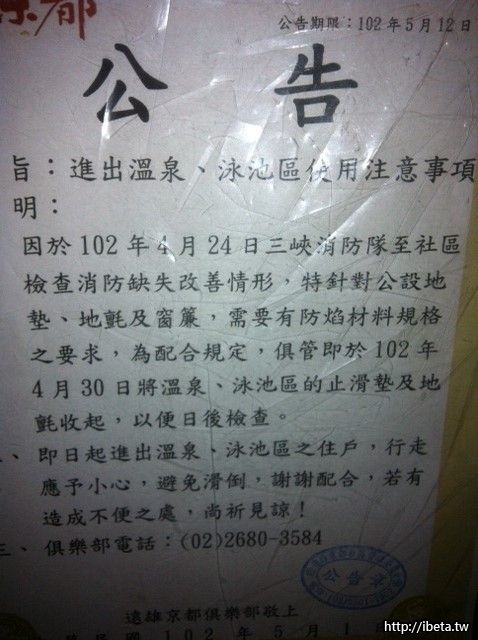 京都
公告期限：102年5月12日
公告
旨：進出溫泉、泳池區使用注意事項
明：
因於102年4月24日三峽消防隊至社區
檢查消防缺失改善情形，特針對公設地
墊、地氈及窗簾，需要有防焰材料規格
之要求，為配合規定，俱管即於102年
4月30日將溫泉、泳池區的止滑墊及地
氈收起，以便日後檢查。
、即日起進出溫泉、泳池區之住戶，行走
應予小心，避免滑倒，謝謝配合，若有
造成不便之處，尚祈見諒！
三、俱樂部電話：(02)2680-3584
公告章
遠雄京都俱樂部敬上
民國102年5月1
http://ibeta.tw